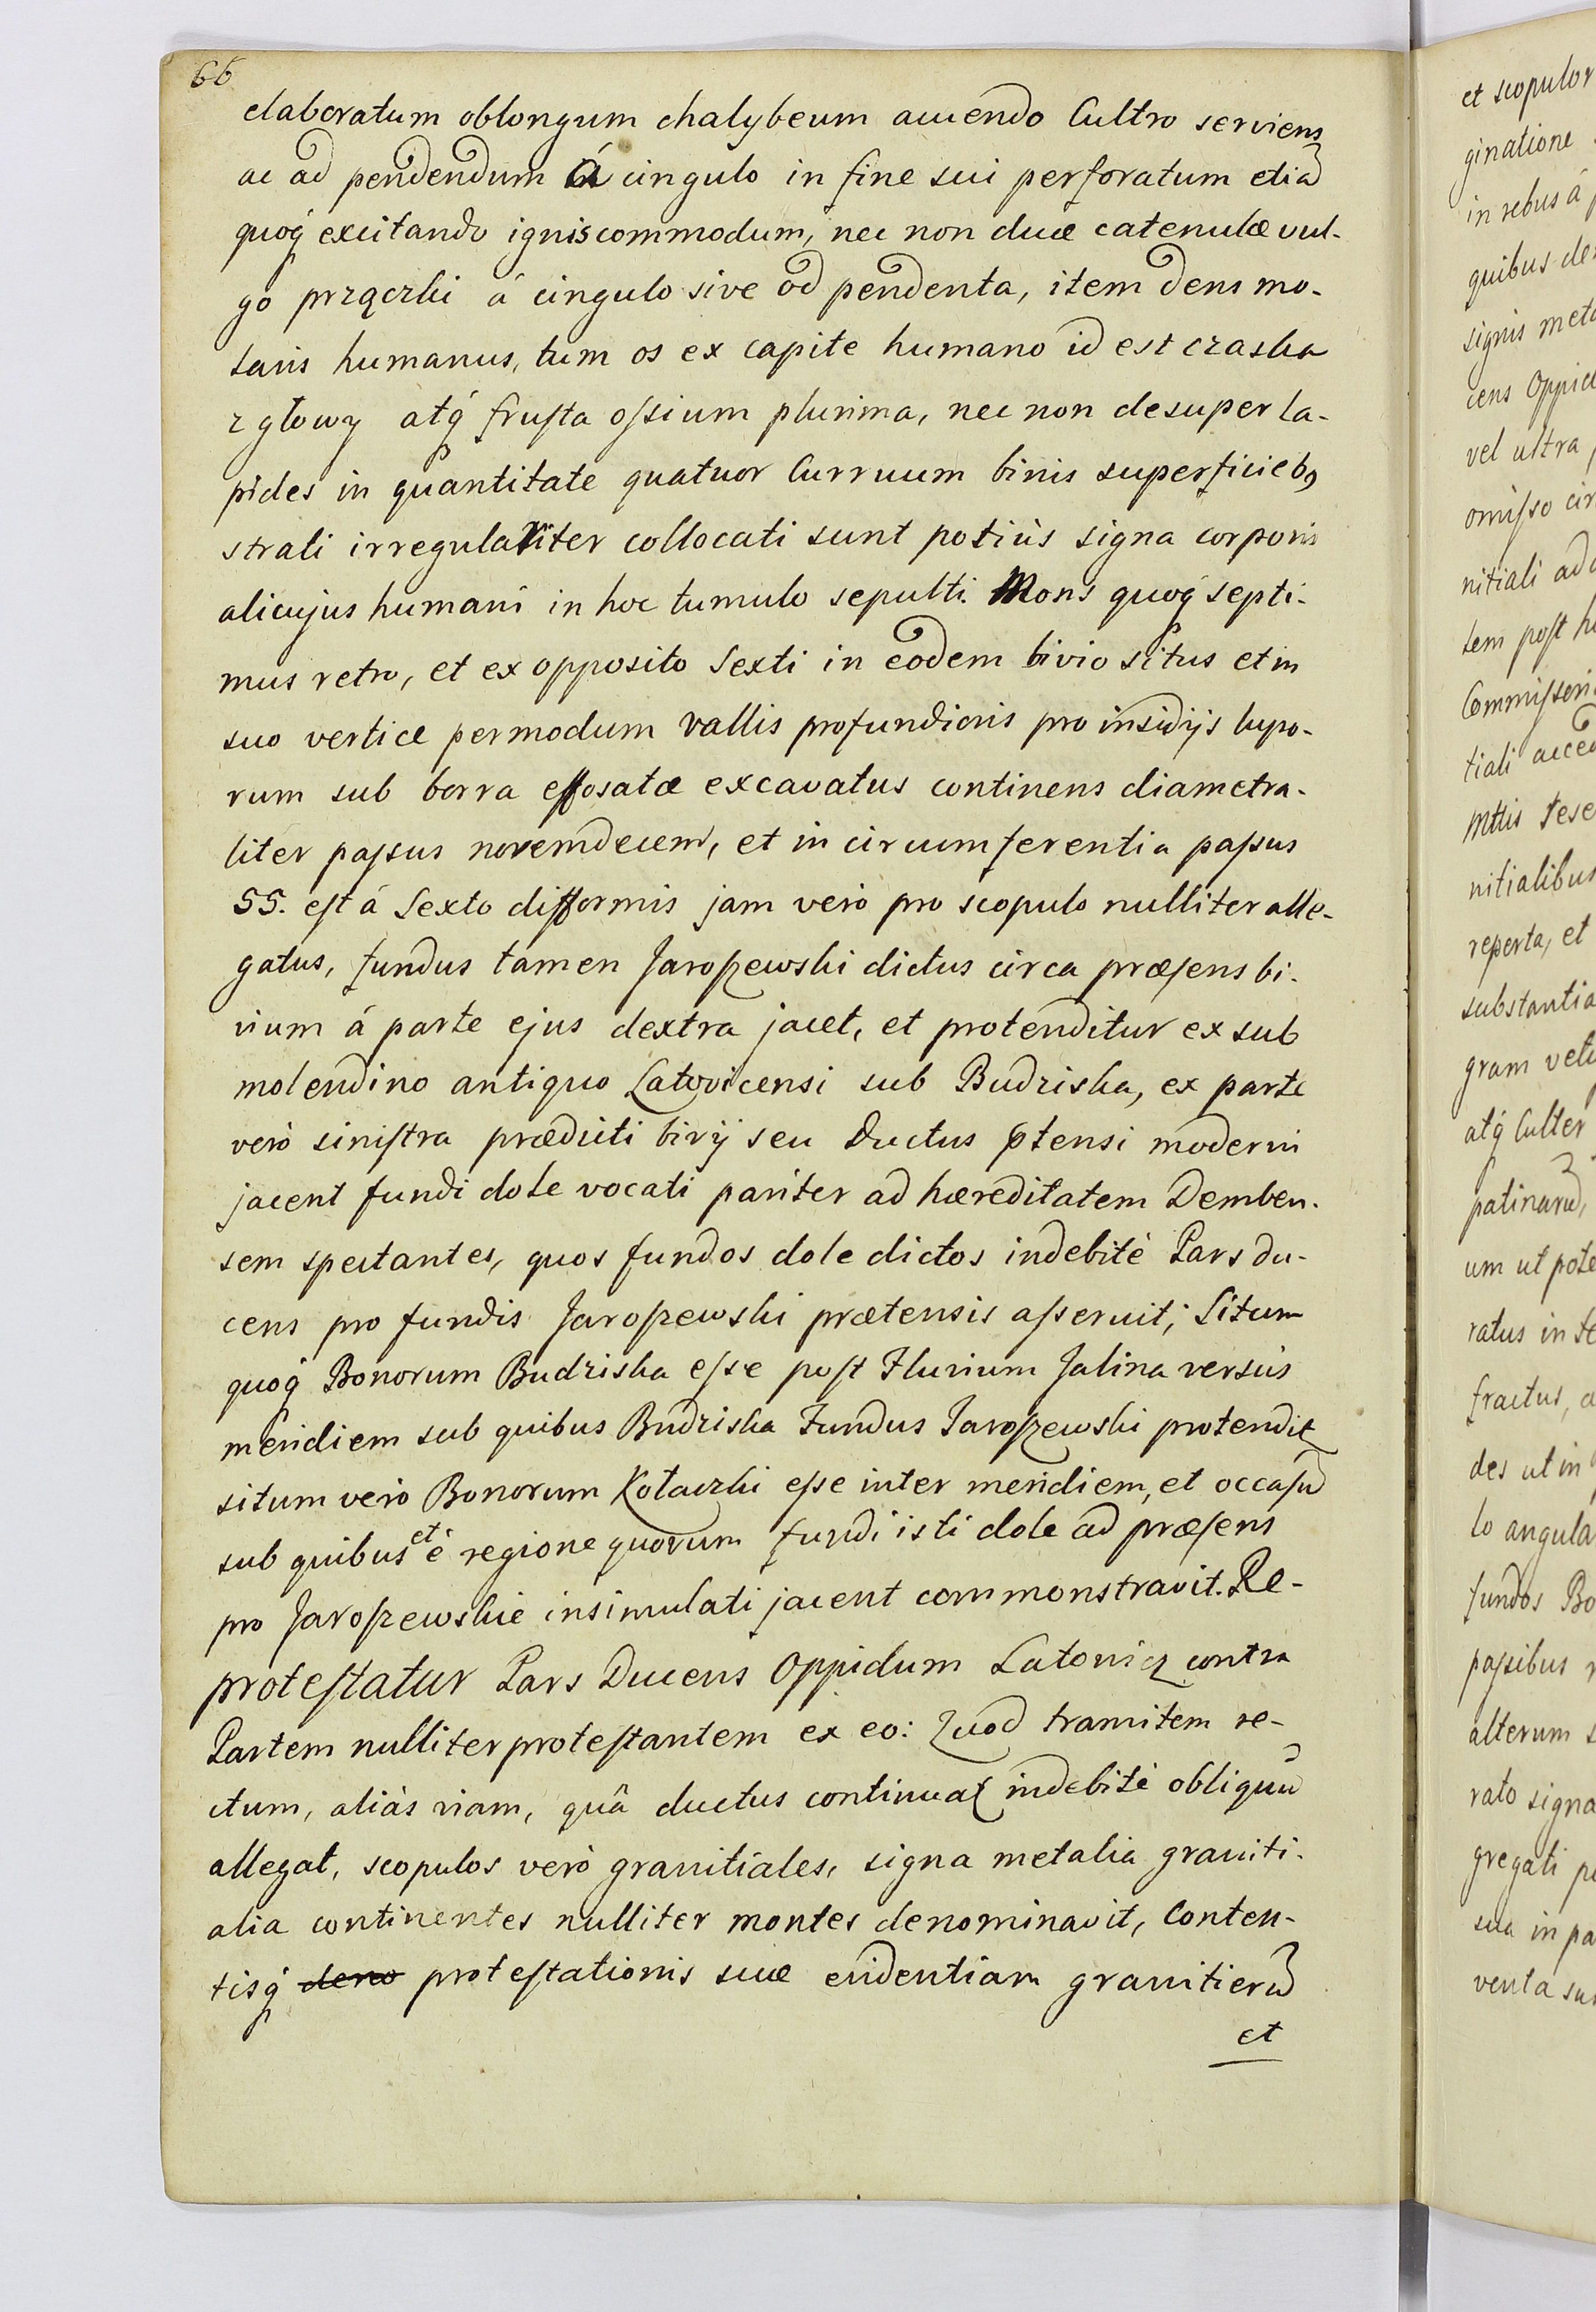 66
elaboratum oblongum chalybeum acuendo Cultro serviens
ac ad pendendum á cingulo in fine sui perforatum etiã
quoq́ excitando ignis commodum, nec non duæ catenulæ vul-
go prządzki á cingulo sive ad pendenta, item dens mo-
laris humanus, tum os ex capite humano id est czaska
z głowy atq́ frusta ossium plurima, nec non desuper la-
pides in quantitate quatuor Curruum binis superficieb9
strati irregulariter collocati sunt potiùs signa corporis
alicujus humani in hoc tumulo sepulti. Mons quoq́ septi-
mus retro, et ex opposito Sexti in eodem bivio situs et in
suo vertice per modum vallis profundioris pro insidijs lupo-
rum sub borra effosatæ excavatus continens diametra-
liter passus novemdecem, et in circumferentia passus
55. est á Sexto difformis jam verò pro scopulo nulliter alle-
gatus, fundus tamen Jaroszewski dictus circa præsens bi-
vium á parte ejus dextra jacet, et protenditur ex sub
molendino antiquo Latovicensi sub Budziska, ex parte
verò sinistra prædicti bivij seu Ductus ptensi moderni
jacent fundi dole vocati pariter ad hæreditatem Demben-
sem spectantes, quos fundos dole dictos indebitè Pars du-
cens pro fundis Jaroszewski prætensis asseruit; Situm
quoq́ Bonorum Budziska esse post Fluvium Jalina versùs
meridiem sub quibus Budziska Fundus Jaroszewski protendit
situm verò Bonorum Kołaczki esse inter meridiem, et occasũ
sub quibus et è regione quorum fundi isti dole ad præsens
pro Jaroszewskie insimulati jacent commonstravit. Re-
protestatur Pars Ducens Oppidum Latowicz contra
Partem nulliter protestantem ex eo: Quod tramitem re-
ctum, aliàs viam, quâ ductus continuat indebitè obliquũ
allegat, scopulos verò granitiales, signa metalia graniti-
alia continentes nulliter montes denominavit, Conten-
tisq́ deno protestationis suæ evidentiam granitierũ
et
et scopulor
ginatione
in rebus á
quibus de
signis meta
cens Oppid
vel ultra
omisso cir
nitiali ad
tem post h
Commisson
tiali acced
Mttis Tese
nitialibus
reperta, et
substantia
gram vet
atq́ Culter
patinarũ,
um ut pote
ratus in te
fractus, a
des ut in
lo angula
fundos Bo
passibus
alterum s
rato signa
gregati p
sua in pa
venta su